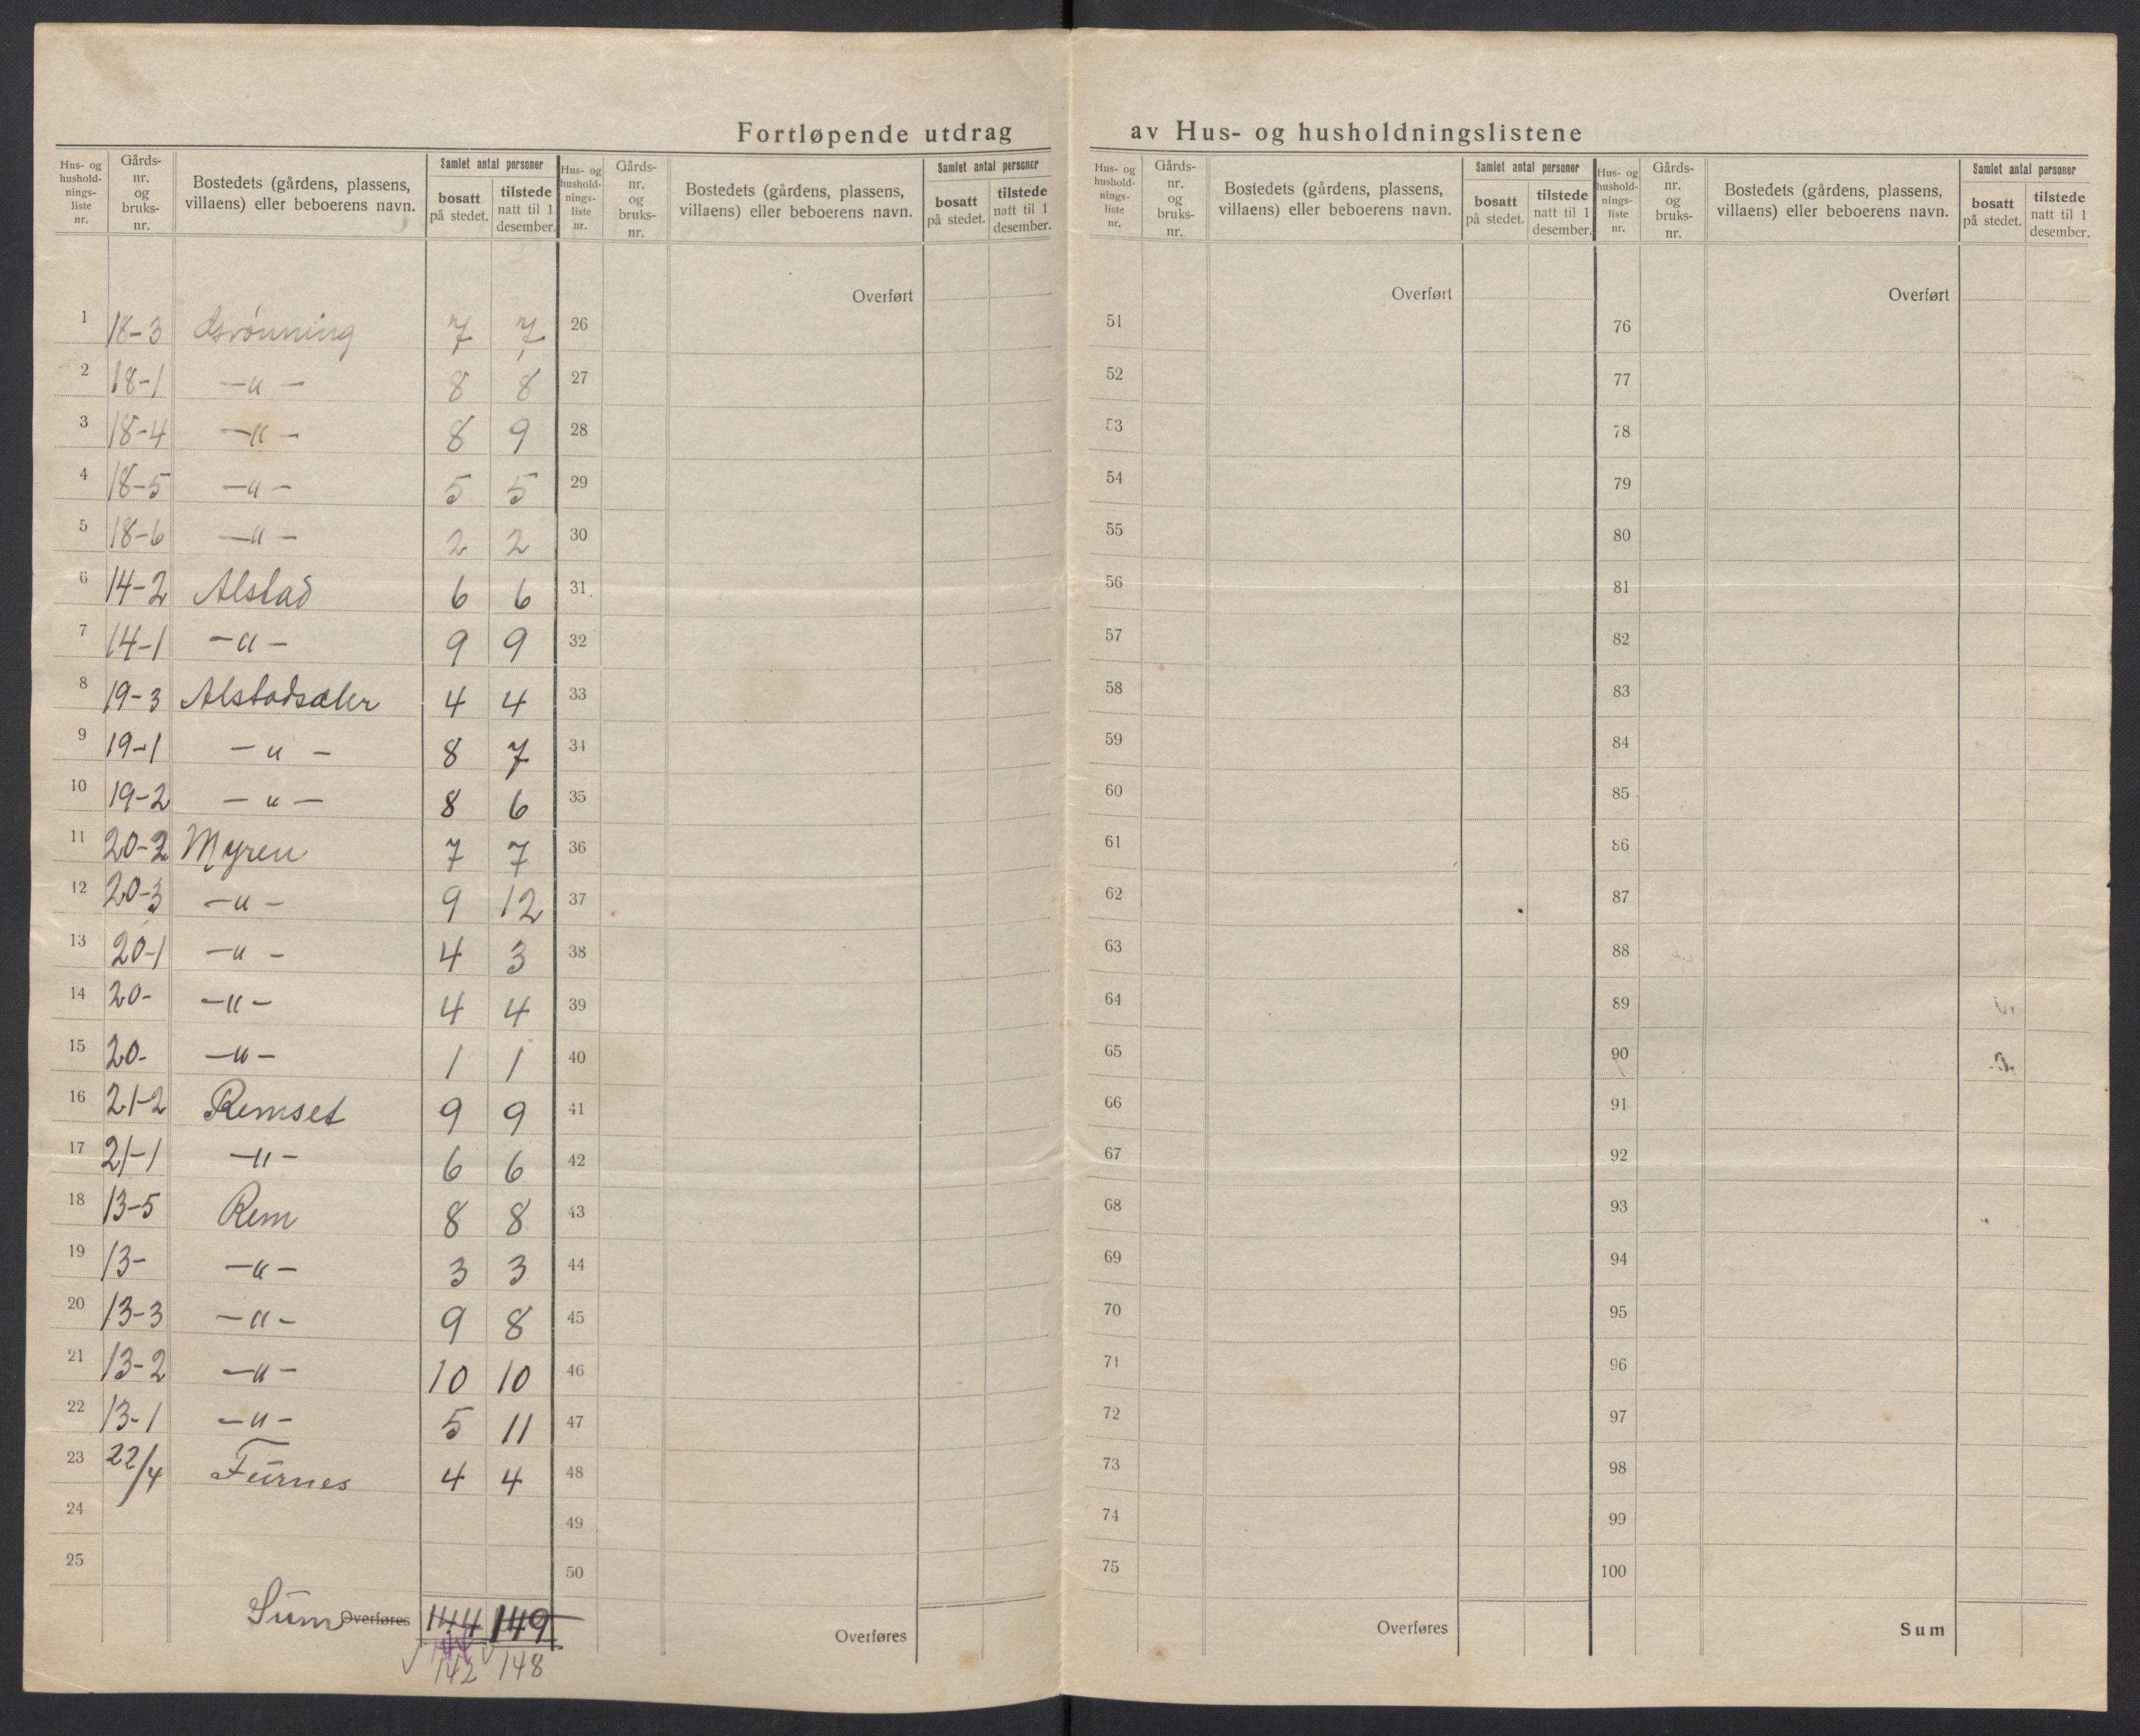 Fortløpende utdrag av Hus- og husholdningslistene
Hus- og hushold-nings-liste nr. Gårds-nr. og bruks-nr. Bostedets (gårdens, plassens, villaens) eller beboerens navn. Samlet antal personer bosatt på stedet. tilstede natt til 1 desember.
1 18-3 7 7
2 18-1 -"- 8 8
3 18-4 -"- 8 9
4 18-5 -"- 5 5
5 18-6 -"- 2 2
6 14-2 Alstad 6 6
7 14-1 -"- 9 9
8 19-3 Alstadsæter 4 4
9 19-1 -"- 8 7
10 19-2 -"- 8 6
11 20-2 Myren 7 7
12 20-3 -"- 9 12
13 20-1 -"- 4 3
14 20- -"- 4 4
15 20- -"- 1 1
16 21-2 Remset 9 9
17 21-1 -"- 6 6
18 13-5 Rem 8 8
19 13- -"- 3 3
20 13-3 -"- 9 8
21 13-2 -"- 10 10
22 13-1 -"- 5 11
23 22/4 Furnes 4 4
24
25
Sum Overføres 144 149
144
142 148
Hus- og hushold-nings-liste nr. Gårds-nr. og bruks-nr. Bostedets (gårdens, plassens, villaens) eller beboerens navn. Samlet antal personer bosatt på stedet. tilstede natt til 1 desember.
Overført
26
27
28
29
30
31
32
33
34
35
36
37
38
39
40
41
42
43
44
45
46
47
48
49
50
Overføres
Hus- og hushold-nings-liste nr. Gårds-nr. og bruks-nr. Bostedets (gårdens, plassens, villaens) eller beboerens navn. Samlet antal personer bosatt på stedet. tilstede natt til 1 desember.
Overført
51
52
53
54
55
56
57
58
59
60
61
62
63
64
65
66
67
68
69
70
71
72
73
74
75
Overføres
Hus- og hushold-nings-liste nr. Gårds-nr. og bruks-nr. Bostedets (gårdens, plassens, villaens) eller beboerens navn. Samlet antal personer bosatt på stedet. tilstede natt til 1 desember.
Overført
76
77
78
79
80
81
82
83
84
85
86
87
88
89
90
91
92
93
94
95
96
97
98
99
100
Sum